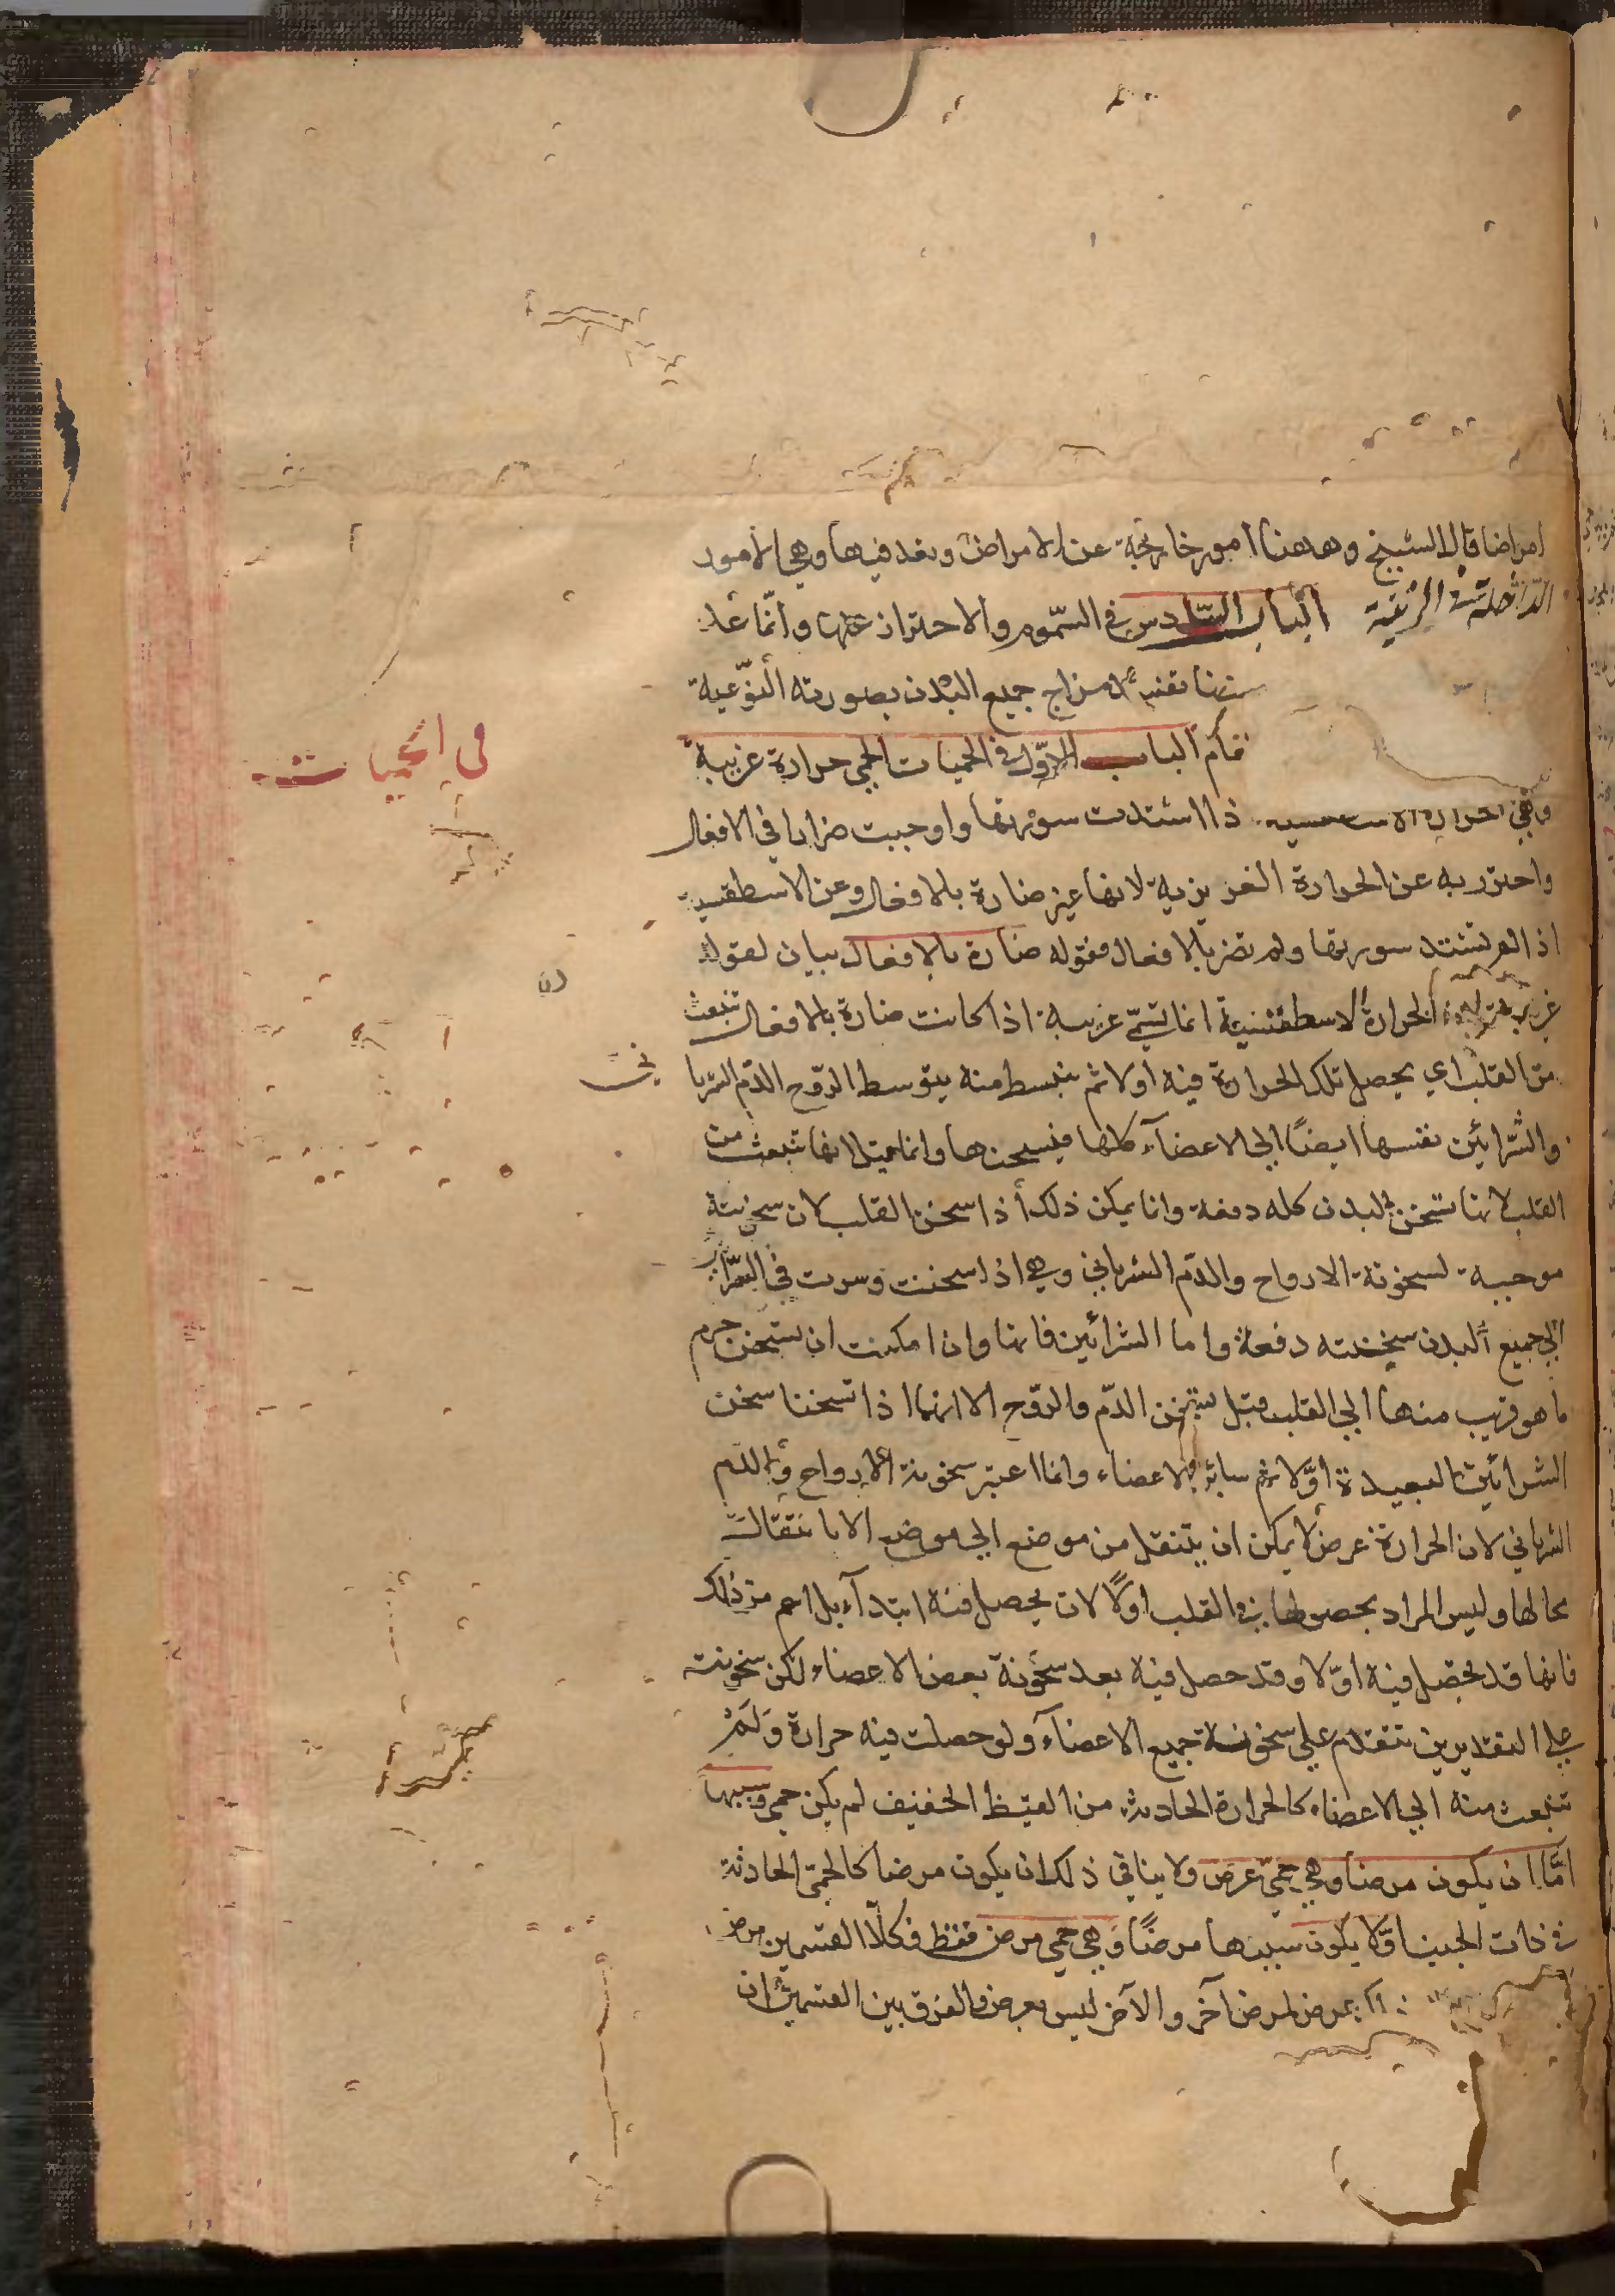 امراضا قال الشيخ وههنا امور خارجة عن الامراض وتعد فيها وهي الامور
الداخلة في الزينة الباب السادس في السموم والاحتراز عنها وانما عد
مزاج جميع البدن بصورته النوعية
الباب الاول في الحميات الحمى حرارة غريبة
في الحميات
وهي الحرارة اذا اشتدت سورتها واوجبت ضررا في الافعال
واحترز به عن الحرارة الغريزية لانها غير ضارة بالافعال وعن الاسطقسية
اذا لم تشتد سورتها ولم تضر بالافعال فقوله ضارة بالافعال بيان لقوله
غريبة الحرارة الاسطقسية انما تسمى غريبة اذا كانت ضارة بالافعال تنبعث
من القلب اي يحصل تلك الحرارة فيه اولا ثم ينبسط منه بتوسط الروح الدم الشريا
ني
والشرائين نفسها ايضا الي الاعضآء كلها فيسخنها وانما قيل انها تنبعث من
القلب لانها تسخن البدن كله دفعة وانما يمكن ذلك اذا سخن القلب لان سخونته
موجبة لسخونة الارواح والدم الشرياني وهي اذا سخنت وسرت في الشرائين
الي جميع البدن سخنته دفعة واما الشرائين فانها وان امكنت ان يسخن جرم
ما هو قريب منها الي القلب قبل تسخن الدم والروح الا انهما اذا تسخنا سخن
الشرائين البعيدة اولا ثم سائر الاعضاء وانما اعتبر سخونة الارواح والدم
الشرياني لان الحرارة عرض لا يمكن ان ينتقل من موضع الي موضع الا بانتقال
محالها وليس المراد بحصولها في القلب اولا لان يحصل فيه ابتدآء بل اعم من ذلك
فانها قد يحصل فيه اولا وقد حصل فيه بعد سخونة بعض الاعضاء لكن سخونته
علي التقديرين تتقدم علي سخونة جميع الاعضآء ولو حصلت فيه حرارة ولم
تنبعث منه الي الاعضاء كالحرارة الحادثة من الغيظ الخفيف لم يكن حمى وسببها
اما ان يكون مرضا وهي حمى عرض ولا ينافي ذلك ان يكون مرضا كالحمى الحادثة
في ذات الجنب او لا يكون سببها مرضا وهي حمى مرض فقط فكلا القسمين مرض
عرض لمرض آخر والآخر ليس بعرض والفرق بين القسمين ان